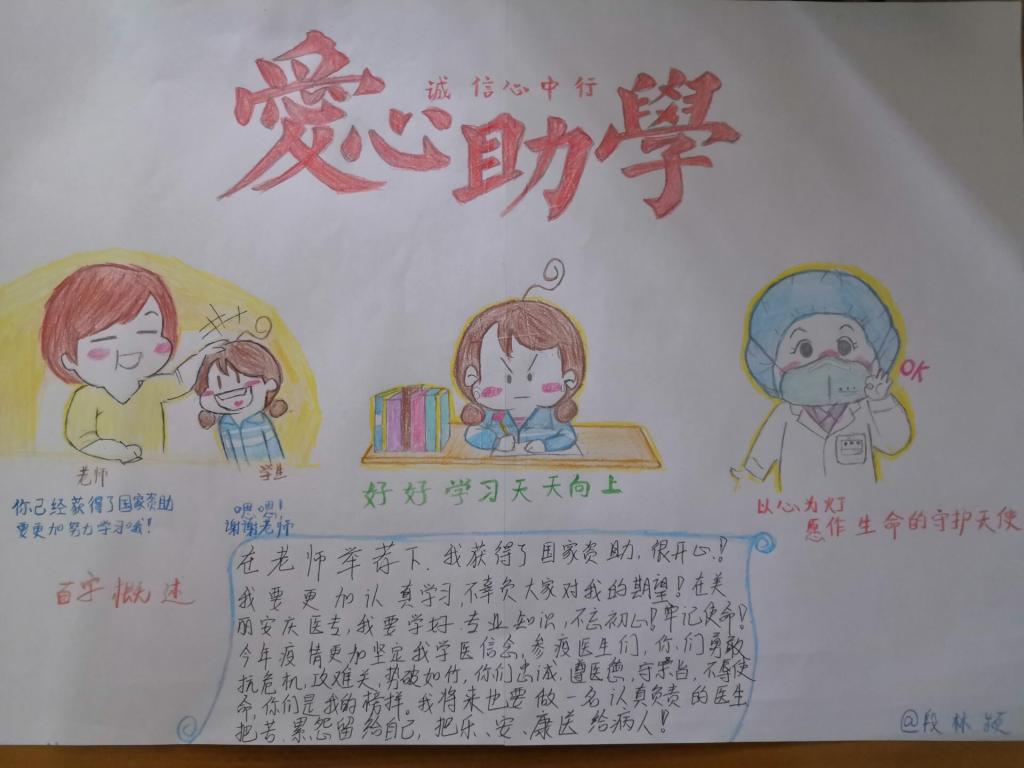 诚信心中行
愛心助學
老师
学生
你已经获得了国家资助
要更加努力学习哦！
嗯嗯！
谢谢老师
好好学习天天向上
OK
以心为灯
愿作生命的守护天使
百字概述
在老师举荐下，我获得了国家资助，很开心！
我要更加认真学习，不辜负大家对我的期望！在美
丽安庆医专，我要学好专业知识，不忘初心！牢记使命！
今年疫情更加坚定我学医信念，参疫医生们，你们勇敢
抗危机，攻难关，势破如竹，你们忠诚、遵医德，守崇当，不辱使
命，你们是我的榜样。我将来也要做一名认真负责的医生
把苦、累、怨留给自己，把乐、安、康医给病人！
@段林